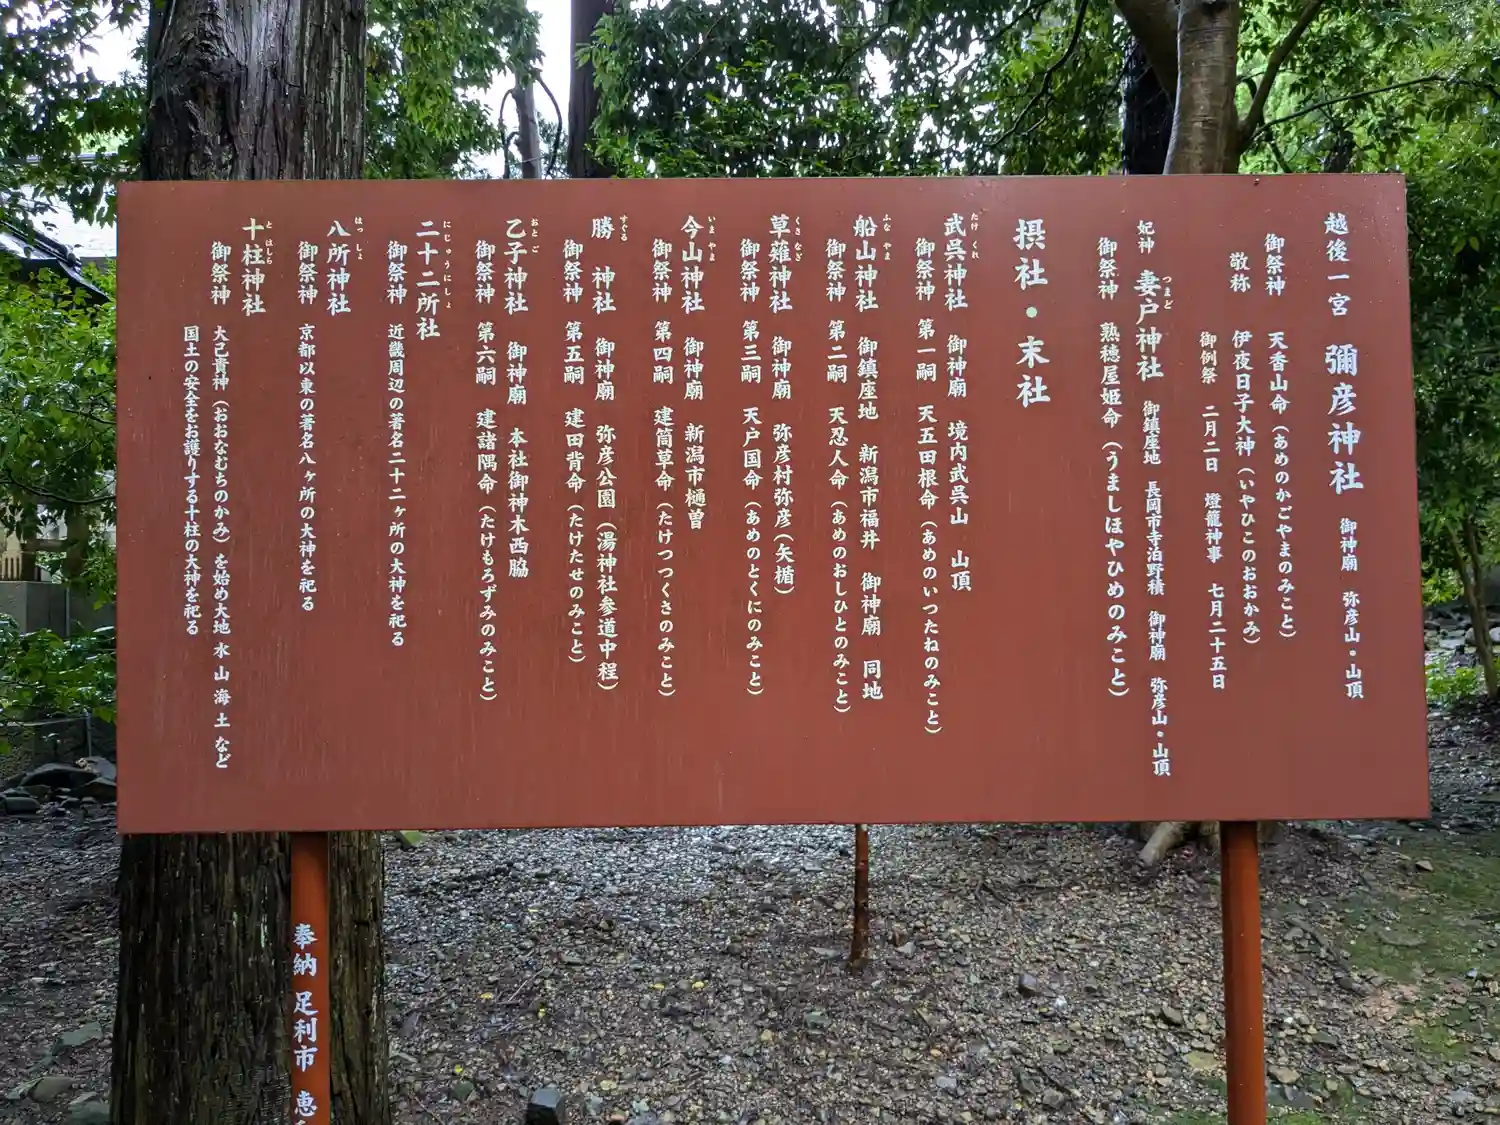 越後一宮 彌彦神社 御神廟 弥彦山・山頂
御祭神 天香山命（あめのかごやまのみこと）
敬称 伊夜日子大神（いやひこのおおかみ）
御例祭 二月二日 燈籠神事 七月二十五日
妃神 妻戸神社 御鎮座地 長岡市寺泊野積 御神廟 弥彦山・山頂
つまど
御祭神 熟穂屋姫命（うましほやひめのみこと）
摂社・末社
武呉神社 御神廟 境内武呉山 山頂
たけくれ
御祭神 第一嗣 天五田根命（あめのいつたねのみこと）
船山神社 御鎮座地 新潟市福井 御神廟 同地
ふなやま
御祭神 第二嗣 天忍人命（あめのおしひとのみこと）
草薙神社 御神廟 弥彦村弥彦（矢楯）
くさなぎ
御祭神 第三嗣 天戸国命（あめのとくにのみこと）
今山神社 御神廟 新潟市樋曽
いまやま
御祭神 第四嗣 建筒草命（たけつつくさのみこと）
勝 神社 御神廟 弥彦公園（湯神社参道中程）
すぐる
御祭神 第五嗣 建田背命（たけたせのみこと）
乙子神社 御神廟 本社御神木西脇
おとご
御祭神 第六嗣 建諸隅命（たけもろずみのみこと）
二十二所社
にじゅうにしょ
御祭神 近畿周辺の著名二十二ヶ所の大神を祀る
八所神社
はっしょ
御祭神 京都以東の著名八ヶ所の大神を祀る
十柱神社
とはしら
御祭神 大己貴神（おおなむちのかみ）を始め大地 水 山 海 土 など
国土の安全をお護りする十柱の大神を祀る
奉納 足利市 恵